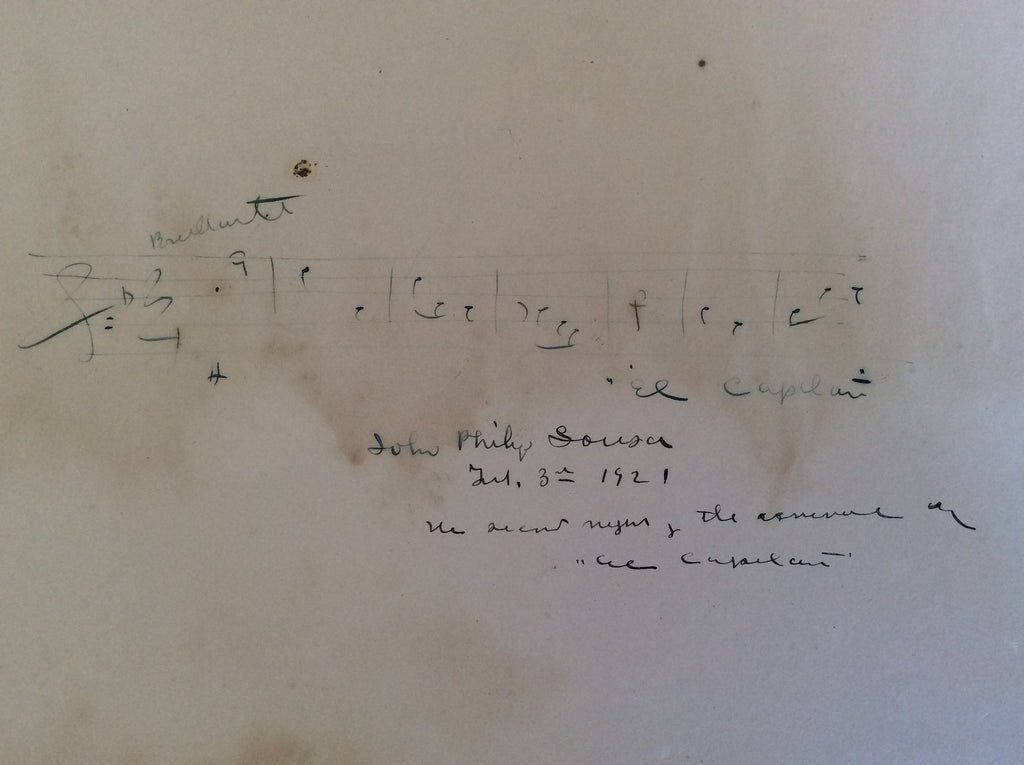 Brillante
"El Capitan"
John Philip Sousa
Feb. 3rd 1921
The second night of the revival of
"El Capitan"